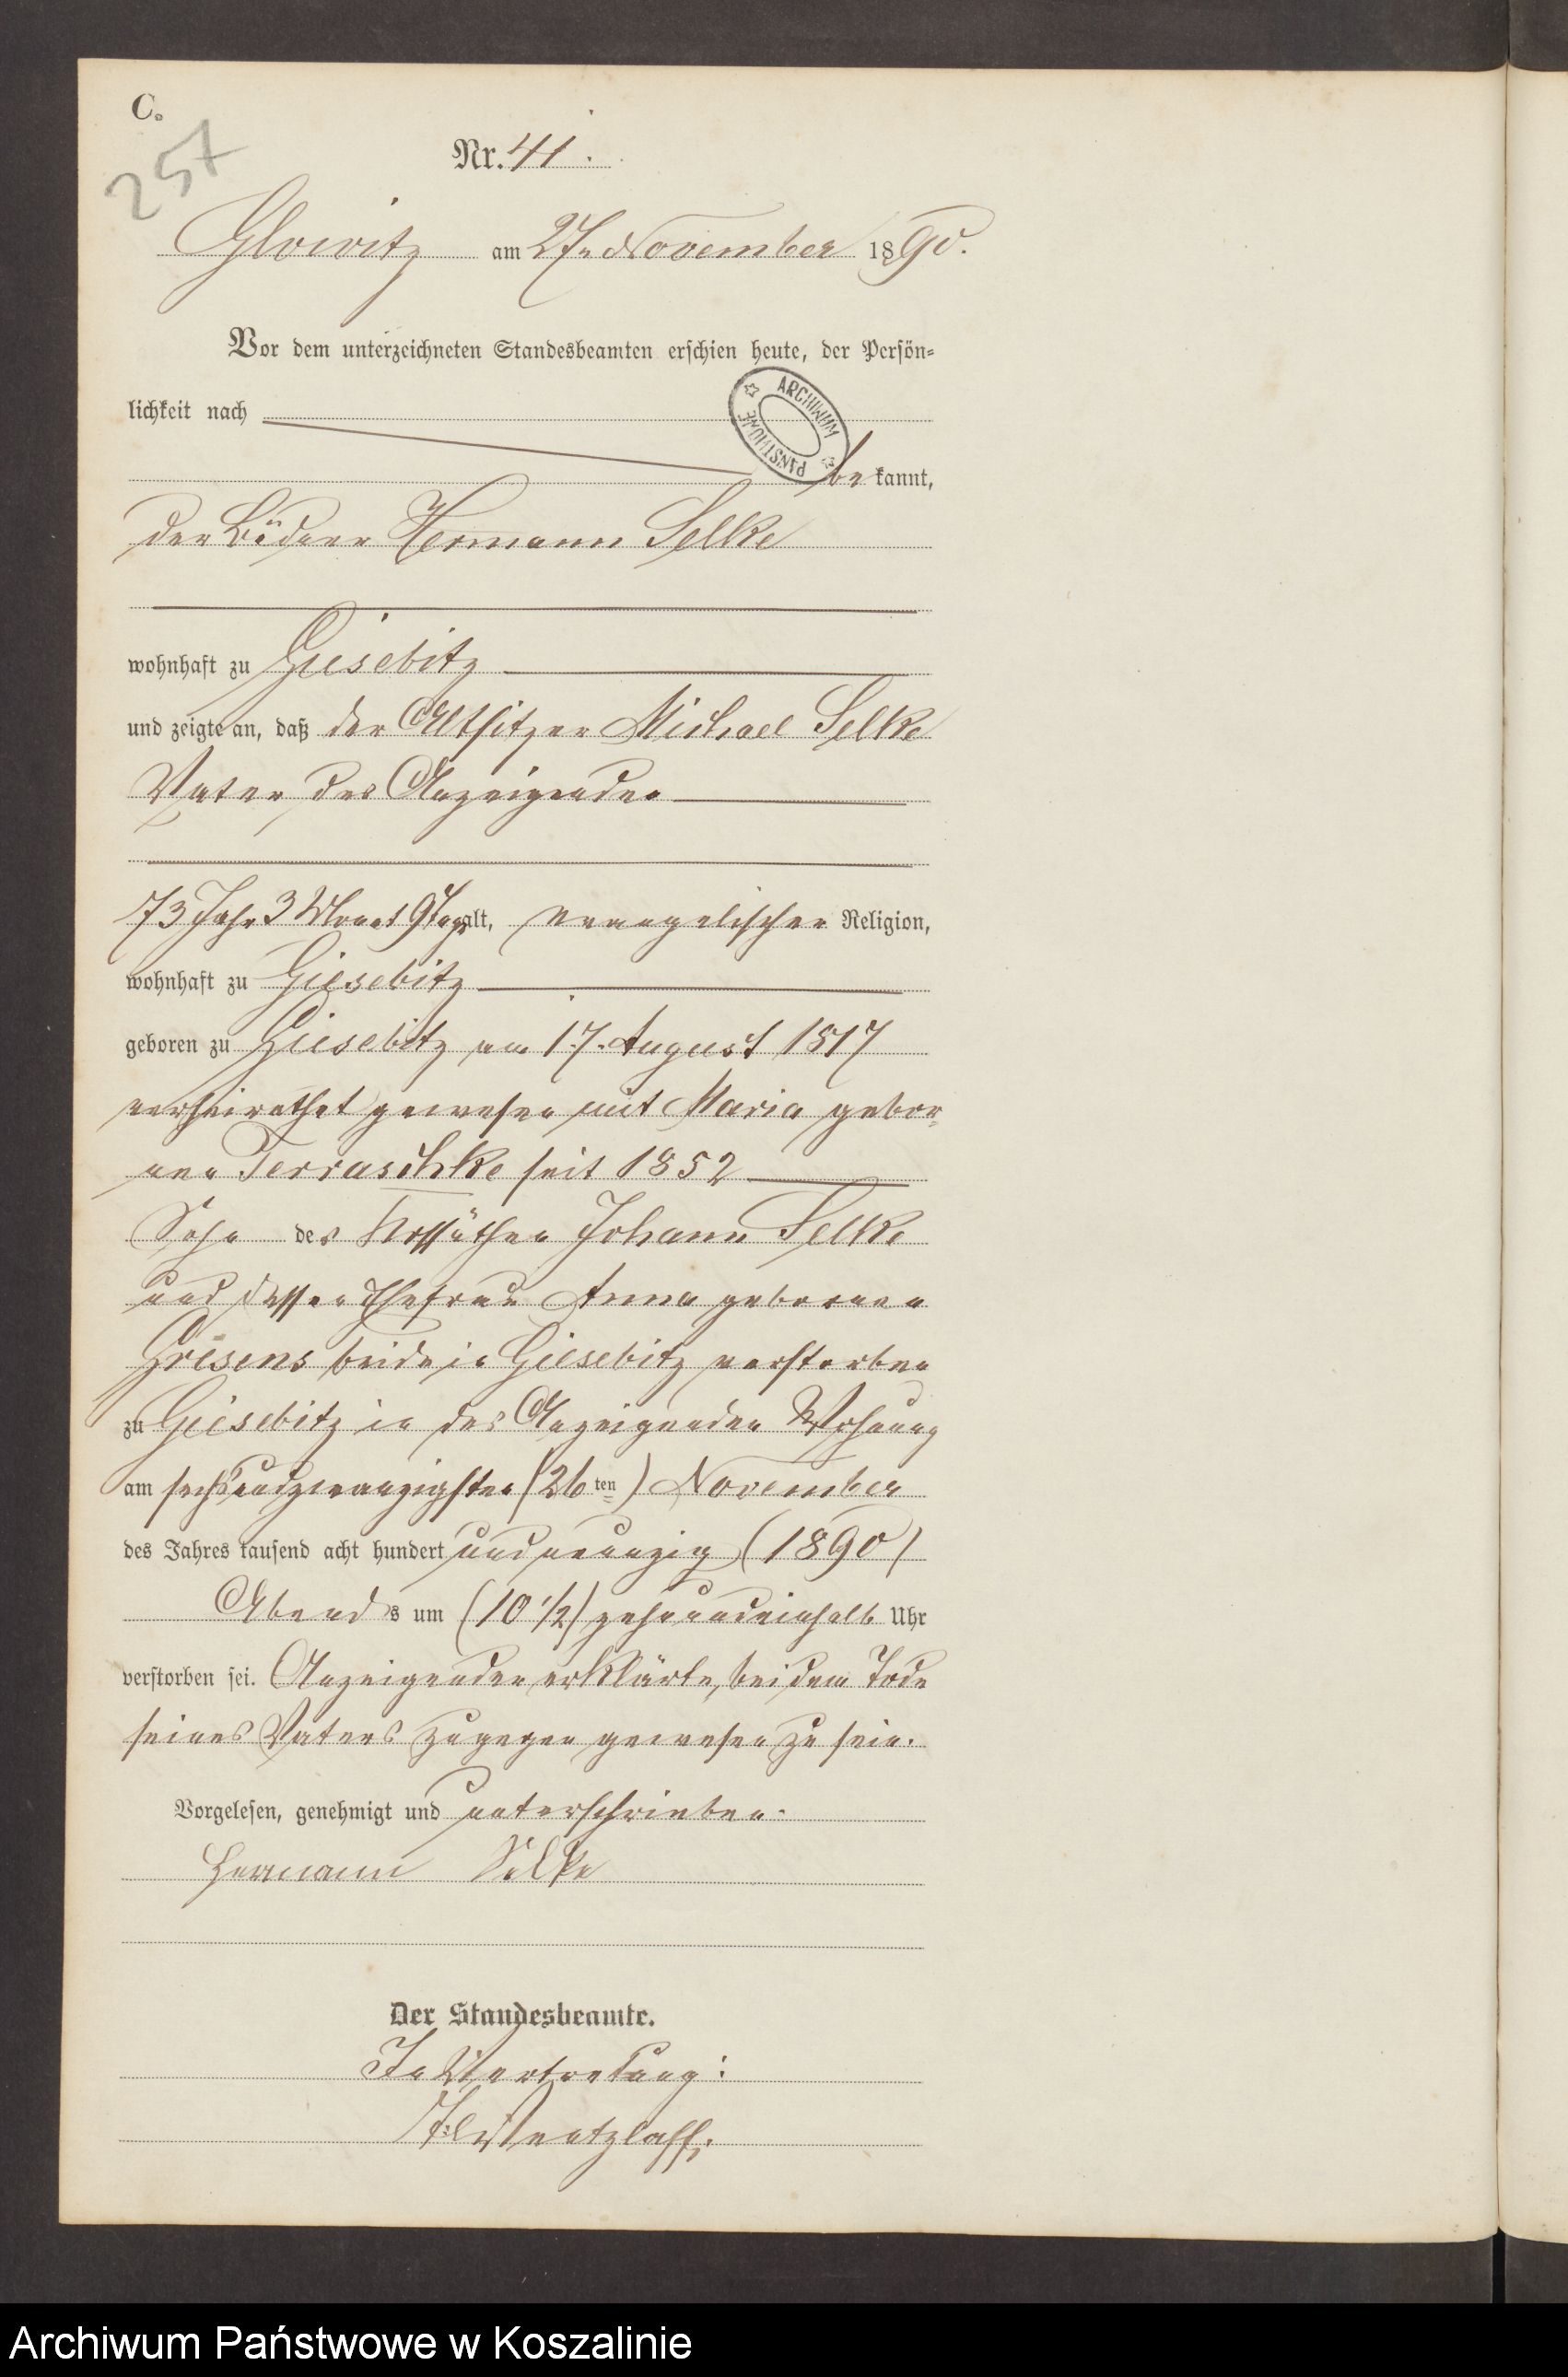 C.
257
Nr. 41.
Glowitz am 27ⁿ November 1890.
Vor dem unterzeichneten Standesbeamten erschien heute, der Persön-
lichkeit nach
ARCHIWUM PAŃSTWOWE
bekannt,
der Büdner Hermann Selke
wohnhaft zu Giesebitz
und zeigte an, daß der Altsitzer Michael Selke
Vater des Anzeigenden
73 Jahr 3 Monat 9 Tage alt, evangelischer Religion,
wohnhaft zu Giesebitz
geboren zu Giesebitz am 17. August 1817
verheirathet gewesen mit Maria gebor-
nen Terraschke seit 1852
Sohn des Kossäthen Johann Selke
und dessen Ehefrau Anna geborenen
Grisens beide in Giesebitz verstorben
zu Giesebitz in des Anzeigenden Wohnung
am sechsundzwanzigsten (26ten) November
des Jahres tausend acht hundert und neunzig (1890)
Abends um (10 1/2) zehnundeinhalb Uhr
verstorben sei. Anzeigender erklärte, bei dem Tode
seines Vaters zugegen gewesen zu sein.
Vorgelesen, genehmigt und unterschrieben.
Hermann Selke
Der Standesbeamte.
In Vertretung:
Wentzlaff.
Archiwum Państwowe w Koszalinie